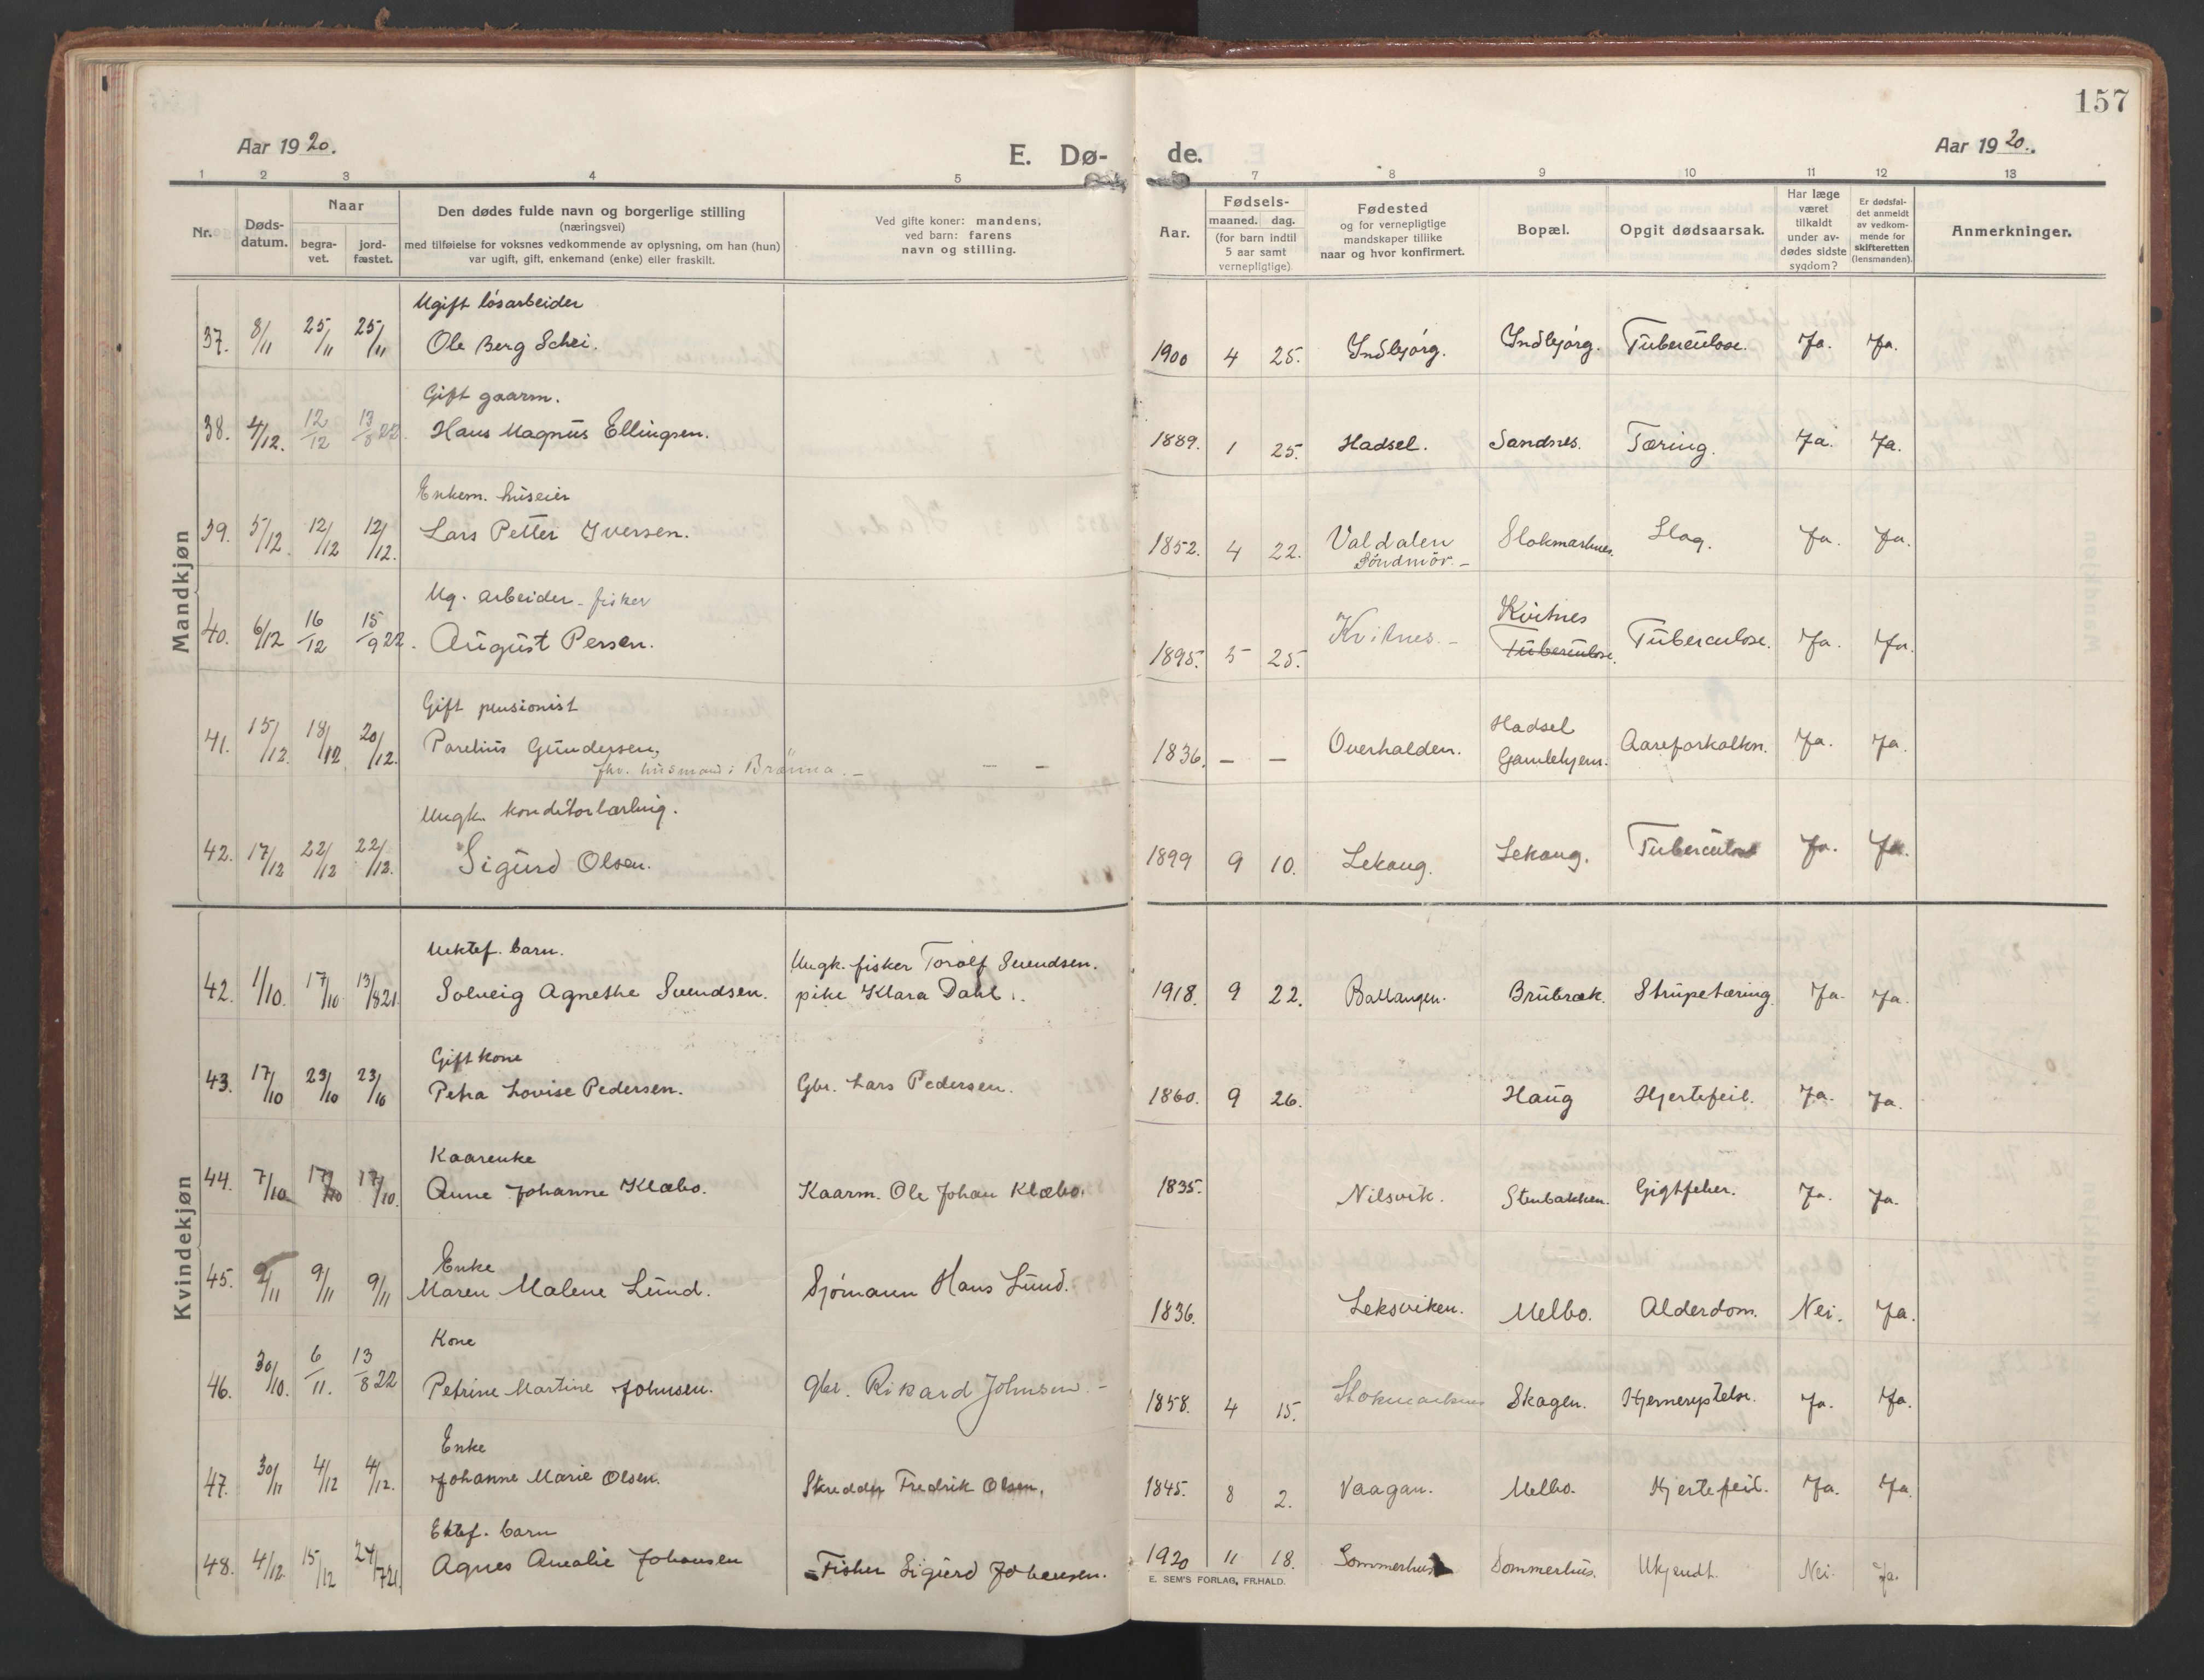 157
Aar 1920.
E. Dø-
de.
Aar 1920.
1 2 3 4 5 7 8 9 10 11 12 13
Nr.
Døds-
datum.
Naar
begra-
vet.
jord-
fæstet.
Den dødes fulde navn og borgerlige stilling
(næringsvei)
med tilføielse for voksnes vedkommende av oplysning, om han (hun)
var ugift, gift, enkemand (enke) eller fraskilt.
Ved gifte koner: mandens,
ved barn: farens
navn og stilling.
Aar.
Fødsels-
maaned. dag.
(for barn indtil
5 aar samt
vernepligtige)
Fødested
og for vernepligtige
mandskaper tillike
naar og hvor konfirmert.
Bopæl.
Opgit dødsaarsak.
Har læge
været
tilkaldt
under av-
dødes sidste
sygdom?
Er dødsfal-
det anmeldt
av vedkom-
mende for
skifteretten
(lensmanden).
Anmerkninger.
Mandkjøn
Ugift løsarbeider
37. 8/11 25/11 25/11 Ole Berg Schei. 1900 4 25. Indbjørg. Indbjørg. Tuberculose. Ja. Ja.
Gift gaarm.
38. 4/12. 12/12 13/8 22. Hans Magnus Ellingsen. 1889. 1 25. Hadsel. Sandnes. Tæring. Ja. Ja.
Enkem. huseier
39. 5/12 12/12 12/12. Lars Petter Iversen. 1852. 4 22. Valdalen Stokmarknes. Slag. Ja. Ja.
Søndmør.-
Ug. arbeider - fisker Kvitnes
40. 6/12 16/12 15/9 22. August Persen. 1895. 5 25. Kvitnes.- Tuberculose. Tuberculose. Ja. Ja.
Gift pensionist Hadsel
41. 15/12. 18/12 20/12. Parelius Gundersen, 1836. - - Overhalden. Gamlehjem. Aareforkalkn. Ja. Ja.
fhv. husmand i Brænna.- - -
Ungk. konditorlærling.
42. 17/12 22/12 22/12. Sigurd Olsen. 1899 9 10. Lekang. Lekang. Tuberculose Ja. Ja.
Kvindekjøn
Uektef. barn. Ungk. fisker Torolf Svendsen.
42. 1/10. 17/10 13/8 21. Solveig Agnethe Svendsen. pike Klara Dahl. 1918. 9 22. Ballangen. Brubræk. Strupetæring. Ja. Ja.
Gift kone
43. 17/10 23/10 23/10 Petra Lovise Pedersen. Gbr. Lars Pedersen. 1860. 9 26. Haug Hjertefeil. Ja. Ja.
Kaarenke
44. 7/10 17/10 17/10. Anne Johanne Klæbo. Kaarm. Ole Johan Klæbo. 1835. Nilsvik. Stenbakken. Gigtfeber. Ja. Ja.
Enke
45. 2/11 9/11 9/11 Maren Malene Lund. Sjømann Hans Lund. 1836. Leksviken. Melbo. Alderdom. Nei. Ja.
Kone
46. 30/10. 6/11. 13/8 22 Petrine Martine Johnsen. gbr. Rikard Johnsen.- 1858. 4 15. Stokmarknes Skagen. Hjernerystelse. Ja. Ja.
Enke
47. 30/11 4/12 4/12. Johanne Marie Olsen. Skredder Fredrik Olsen. 1845. 8 2. Vaagan. Melbo. Hjertefeil. Ja. Ja.
Ektef. barn
48. 4/12. 15/12 24/7 21. Agnes Amalie Johansen Fisker Sigurd Johansen. 1920 11 18. Sommerhus Sommerhus. Ukjendt. Nei. Ja.
E. SEM'S FORLAG, FR.HALD.